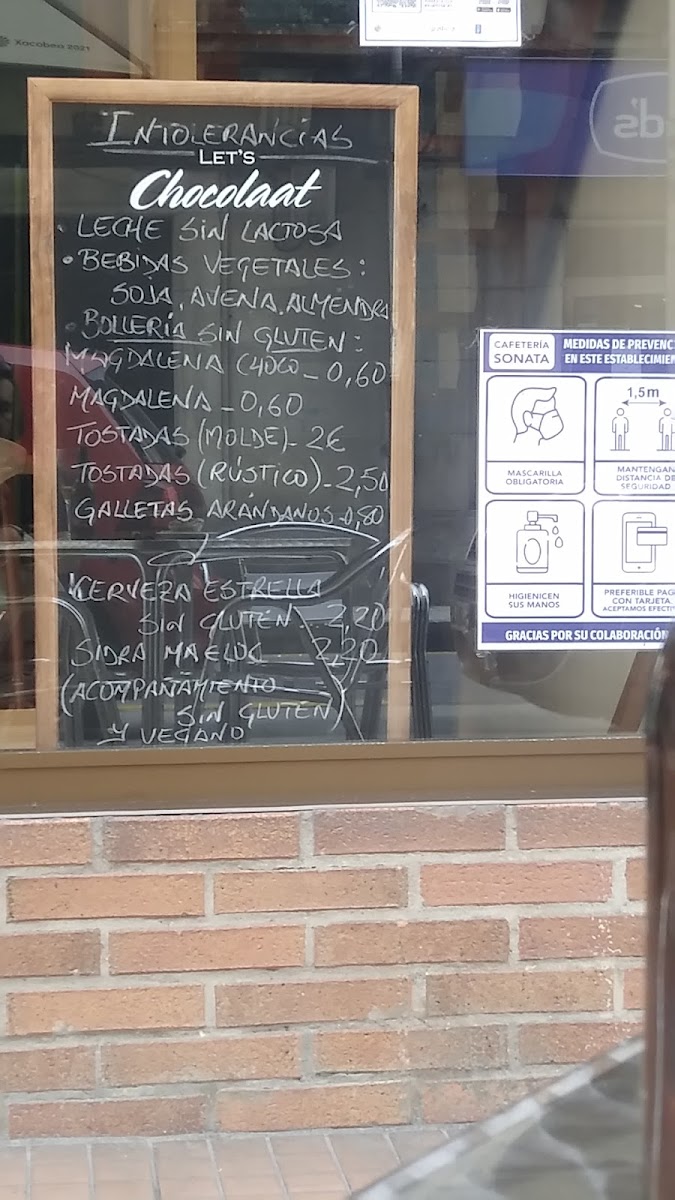 Xacobeo 2021
INTOLERANCIAS
LET'S
Chocolaat
• LECHE SIN LACTOSA
• BEBIDAS VEGETALES:
SOJA, AVENA, ALMENDRA
• BOLLERÍA SIN GLUTEN:
MAGDALENA CHOCO - 0,60
MAGDALENA - 0,60
TOSTADAS (MOLDE) - 2€
TOSTADAS (RÚSTICO) - 2,50
GALLETAS ARÁNDANOS - 0,80
CERVEZA ESTRELLA
SIN GLUTEN - 2,20
SIDRA MAELOC 2,20
(ACOMPAÑAMIENTO
SIN GLUTEN)
Y VEGANO
CAFETERÍA
SONATA
MEDIDAS DE PREVENC
EN ESTE ESTABLECIMIEN
MASCARILLA
OBLIGATORIA
1,5m
MANTENGAN
DISTANCIA DE
SEGURIDAD
HIGIENICEN
SUS MANOS
PREFERIBLE PAG
CON TARJETA.
ACEPTAMOS EFECTIV
GRACIAS POR SU COLABORACIÓN